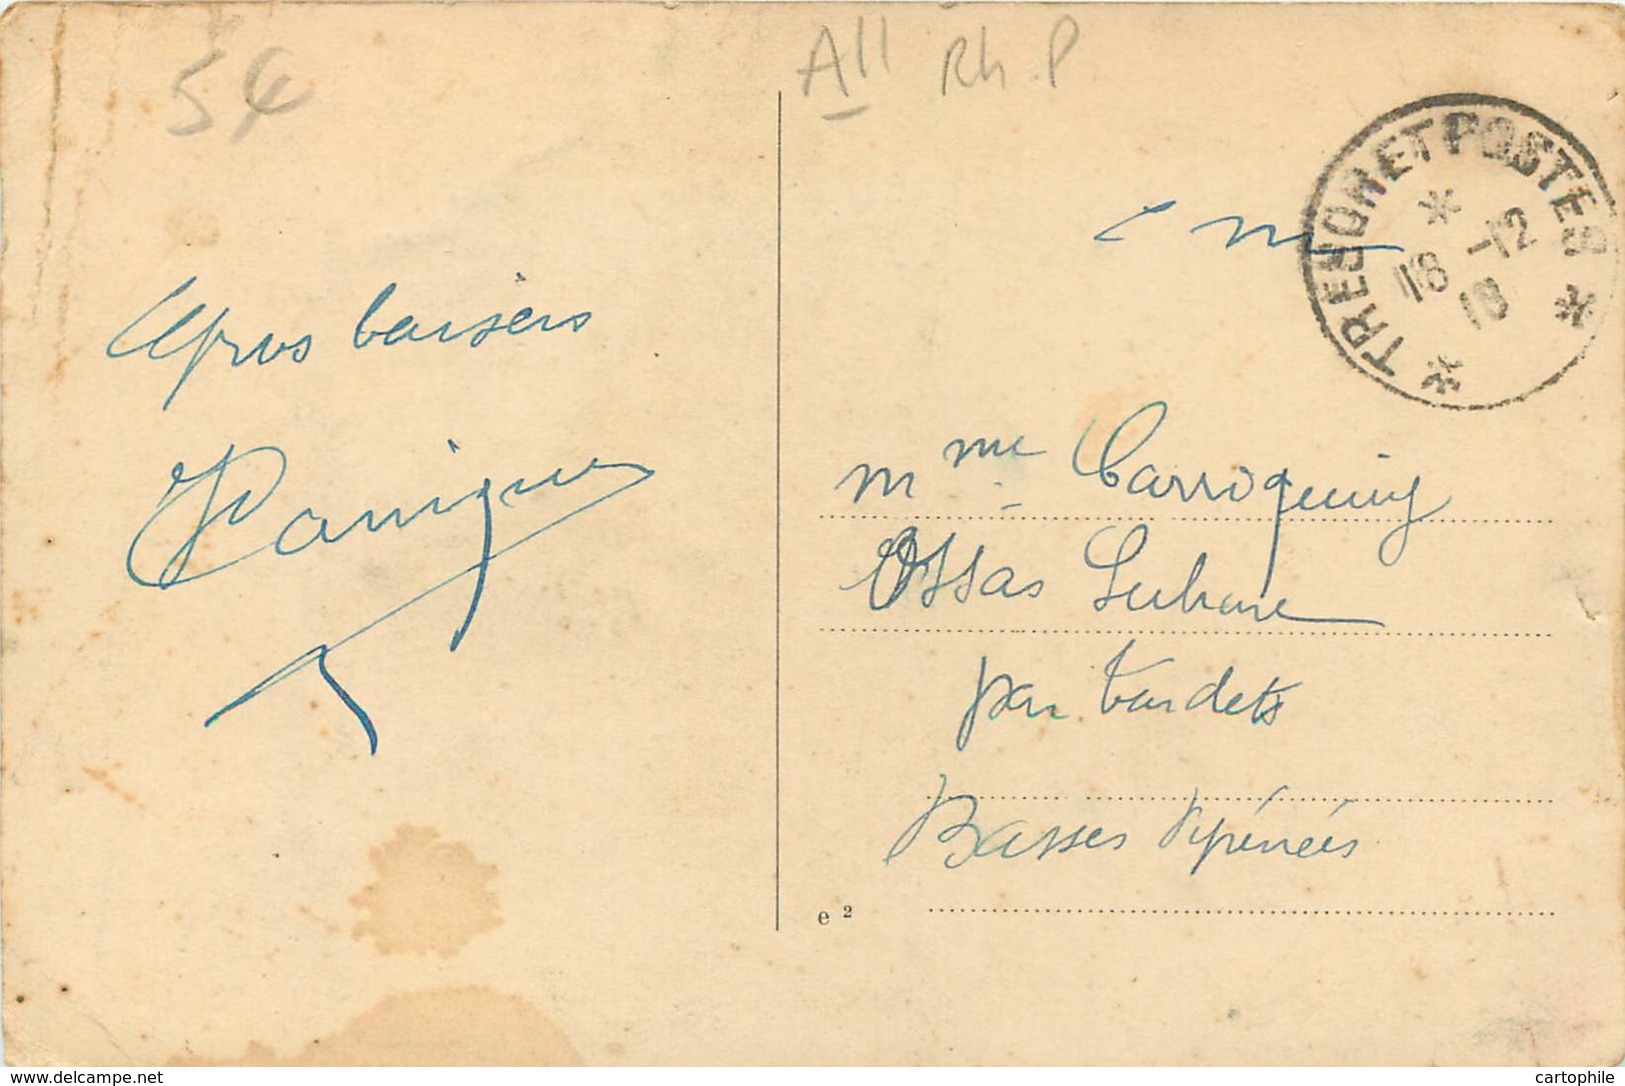 5€
All Rh P
TRESOR ET POSTES
18 -12
18
gros baisers
Mme Carriquiry
Ossas Suhare
par Tardets
Basses Pyrénées
e 2
www.delcampe.net
cartophile